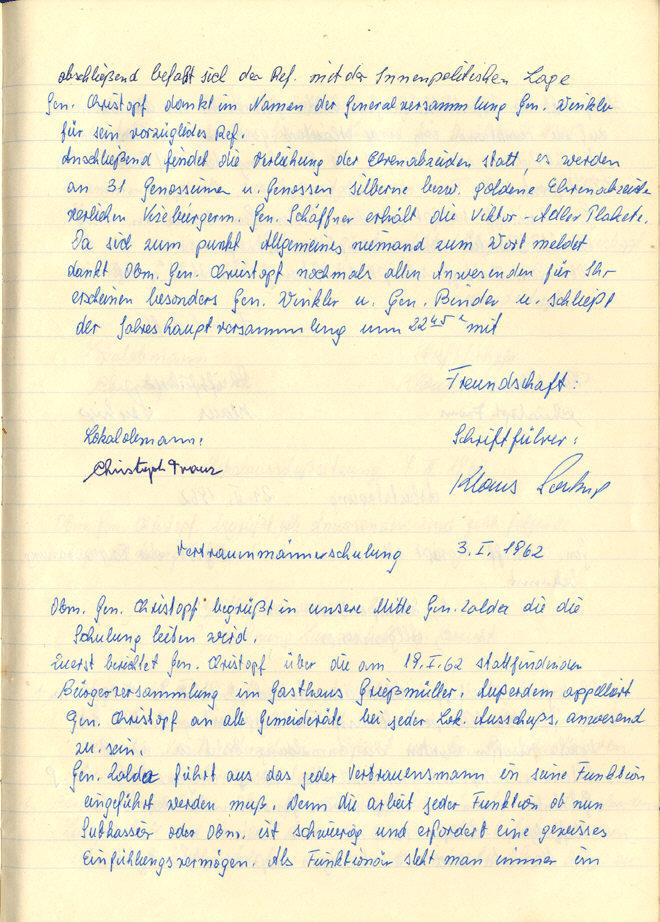 abschließend befaßt sich der Ref. mit der Innenpolitischen Lage
Gen. Christopf dankt im Namen der Generalversammlung Gen. Winkler
für sein vorzügliches Ref.
Anschließend findet die Verleihung der Ehrenabzeichen statt, es werden
an 31. Genossinnen u. Genossen silberne bzw. goldene Ehrenabzeichen
verliehen Vizebürgerm. Gen. Schäffner erhält die Viktor-Adler Plakete.
Da sich zum punkt Allgemeines niemand zum Wort meldet
dankt Obm. Gen. Christopf nochmals allen Anwesenden für Ihr
erscheinen besonders Gen. Winkler u. Gen. Binder u. schließt
der Jahreshauptversammlung um 22 45 h mit
Freundschaft:
Lokalobmann: Schriftführer:
Christoph Franz Klaus
Vertrauenmännerschulung 3. I. 1962
Obm. Gen. Christopf begrüßt in unsere Mitte Gen. Zalda die die
Schulung leiten wird.
Zuerst berichtet Gen. Christopf über die am 19. I. 62 stattfindenden
Bürgerversammlung im Gasthaus Grießmüller. Außerdem appelliert
Gen. Christopf an alle Gemeideräte bei jeder Lok. Ausschuß. anwesend
zu sein.
Gen. Zalda führt aus das jeder Vertrauensmann in seine Funktion
eingeführt werden muß. Denn die arbeit jeder Funktion ob nun
Subkassier oder Obm. ist schwierig und erfordert eine gewisses
Einfühlungsvermögen. Als Funktionär steht man immer im